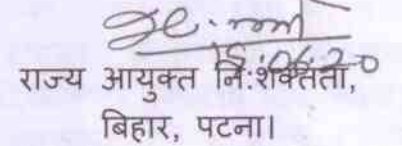 15.06.20
राज्य आयुक्त नि:शक्तता,
बिहार, पटना।